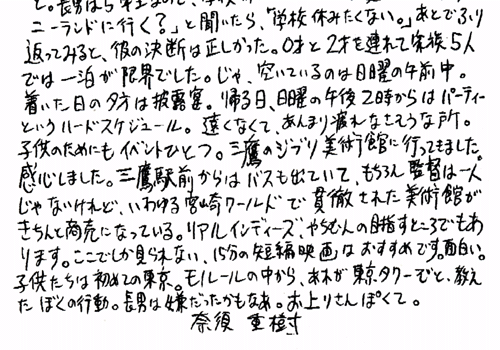 と。長男は5年生なので、学校
ニーランドに行く?」と聞いたら、「学校休みたくない。」あとでふり
返ってみると、彼の決断は正しかった。0才と2才を連れて家族5人
では一泊が限界でした。じゃ、空いているのは日曜の午前中。
着いた日の夕方は披露宴。帰る日、日曜の午後2時からはパーティー
というハードスケジュール。遠くなくて、あんまり疲れなさそうな所。
子供のためにもイベントひとつ。三鷹のジブリ美術館に行ってきました。
感心しました。三鷹駅前からはバスも出ていて、もちろん監督は一人
じゃないけれど、いわゆる宮崎ワールドで貫徹された美術館が
きちんと商売になっている。リアルインディーズ、やちむんの目指すところでもあ
ります。ここでしか見られない、15分の短編映画はおすすめです。面白い。
子供たちは初めての東京。モルールの中から、あれが東京タワーでと、教え
たぼくの行動。長男は嫌だったかもなあ。お上りさんぽくて。
奈須 重樹